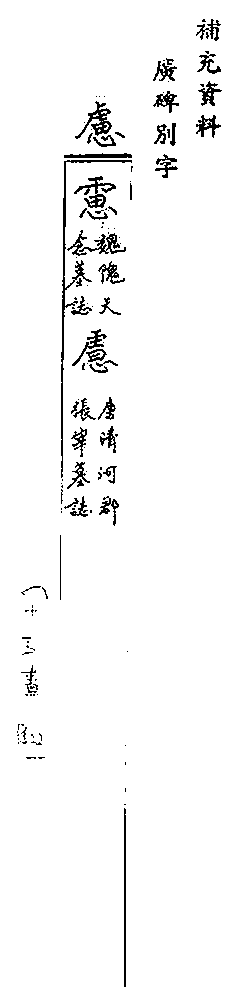 補充資料
廣碑別字
慮
魏隗天
念墓誌
唐清河郡
張墓誌